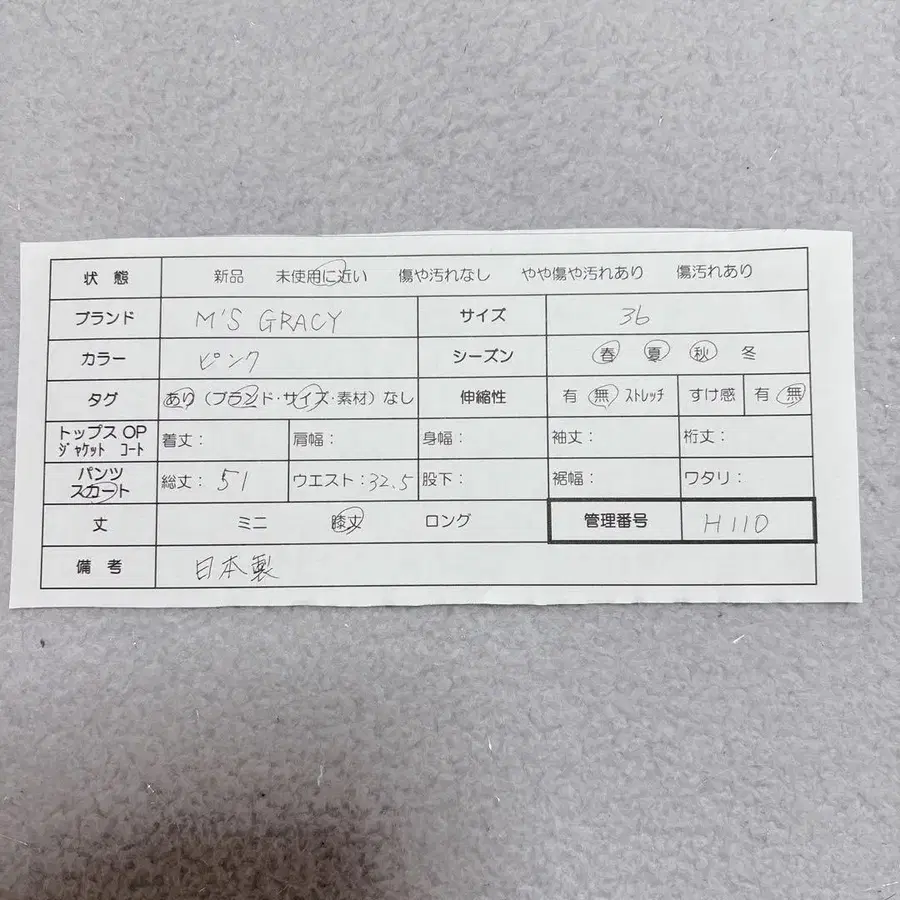 状態 新品 未使用に近い 傷や汚れなし やや傷や汚れあり 傷汚れあり
ブランド M'S GRACY サイズ 36
カラー ピンク シーズン 春 夏 秋 冬
タグ あり(ブランド・サイズ・素材)なし 伸縮性 有 無 ストレッチ すけ感 有 無
トップス OP
ジャケット コート 着丈: 肩幅: 身幅: 袖丈: 裄丈:
パンツ
スカート 総丈: 51 ウエスト: 32.5 股下: 裾幅: ワタリ:
丈 ミニ 膝丈 ロング 管理番号 H110
備考 日本製